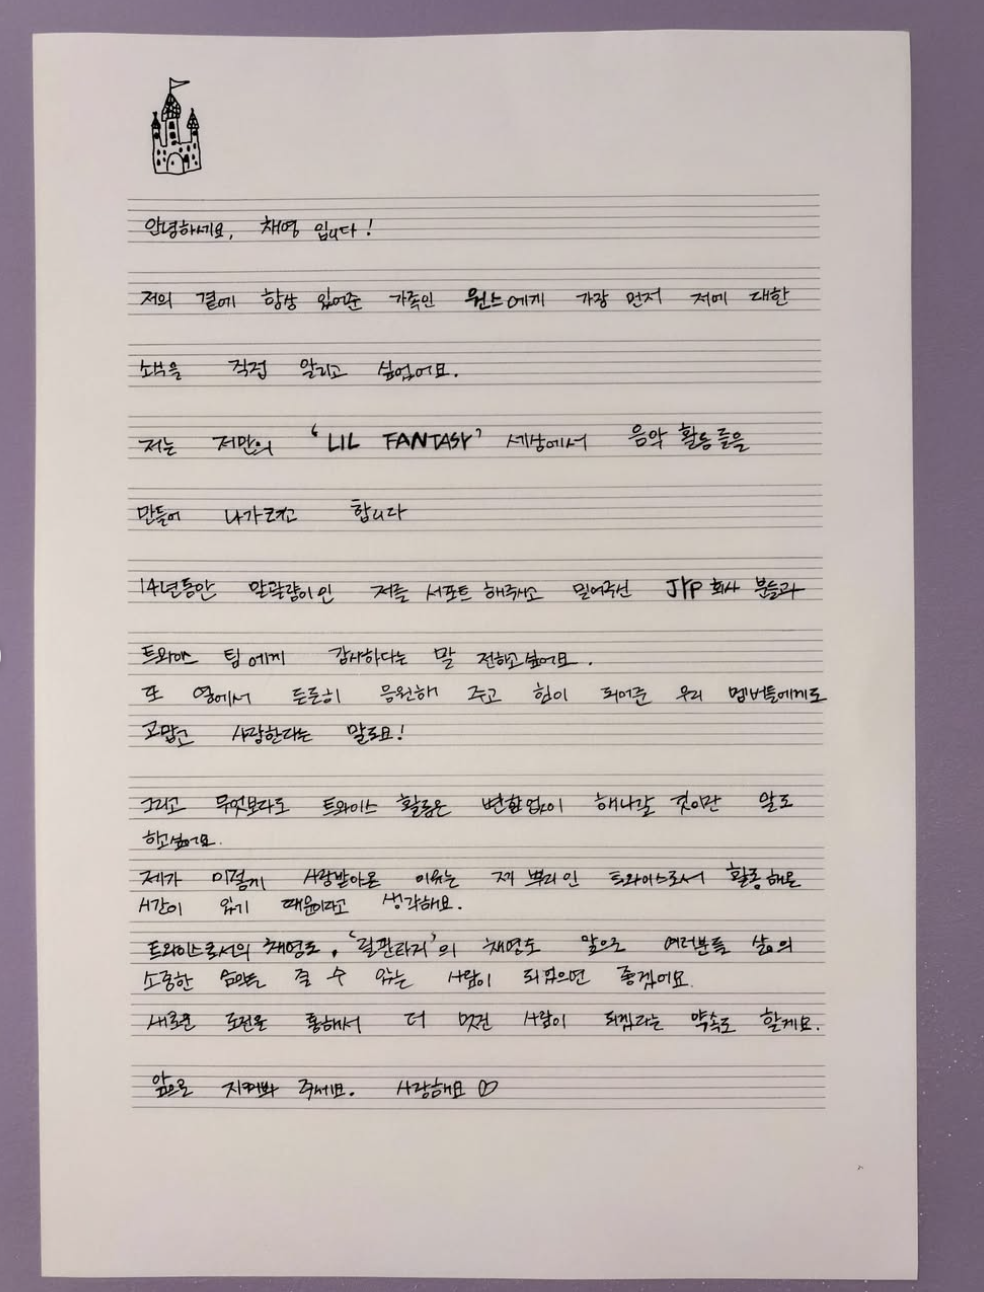 안녕하세요, 채영 입니다!
저의 곁에 항상 있어준 가족인 원스에게 가장 먼저 저에 대한
소식을 직접 알리고 싶었어요.
저는 저만의 'LIL FANTASY' 세상에서 음악 활동들을
만들어 나가려고 합니다
14년동안 말괄량이인 저를 서포트 해주시고 밀어주신 JYP 회사 분들과
트와이스 팀에게 감사하다는 말 전하고싶어요.
또 옆에서 든든히 응원해 주고 힘이 되어준 우리 멤버들에게도
고맙고 사랑한다는 말도요!
그리고 무엇보다도 트와이스 활동은 변함없이 해나갈 것이란 말도
하고싶어요.
제가 이렇게 사랑받아온 이유는 제 뿌리인 트와이스로서 활동해온
시간이 있기 때문이라고 생각해요.
트와이스로서의 채영도, '릴판타지'의 채영도 앞으로 여러분들 삶의
소중한 줄 수 있는 사람이 되었으면 좋겠어요.
새로운 도전을 통해서 더 멋진 사람이 되겠다는 약속도 할게요.
앞으로 지켜봐 주세요. 사랑해요♡